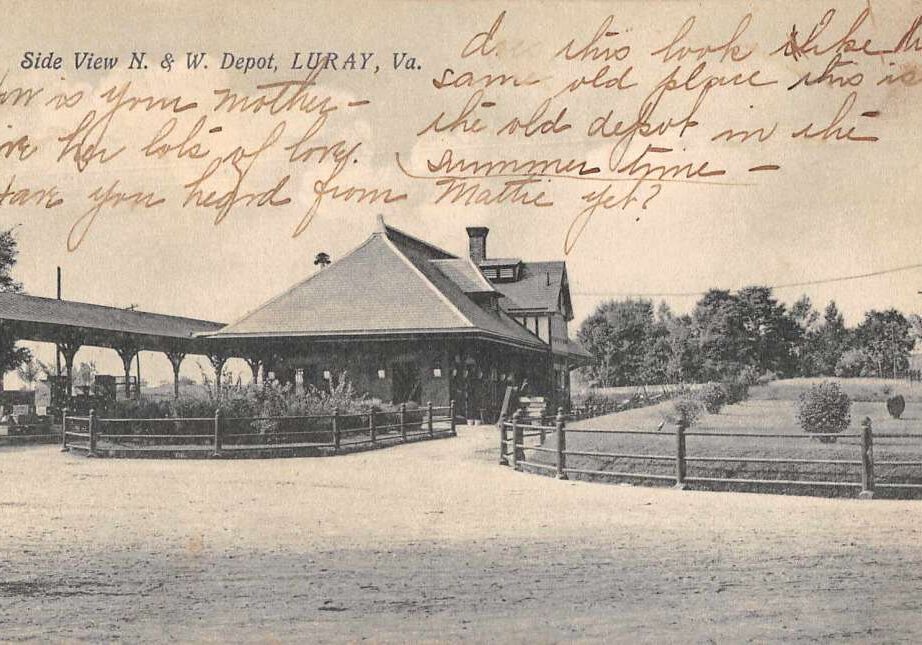 Side View N. & W. Depot, LURAY, Va.
does this look like the
same old place this is
the old depot in the
summer time –
How is your mother –
give her lots of love.
Have you heard from Mattie yet?